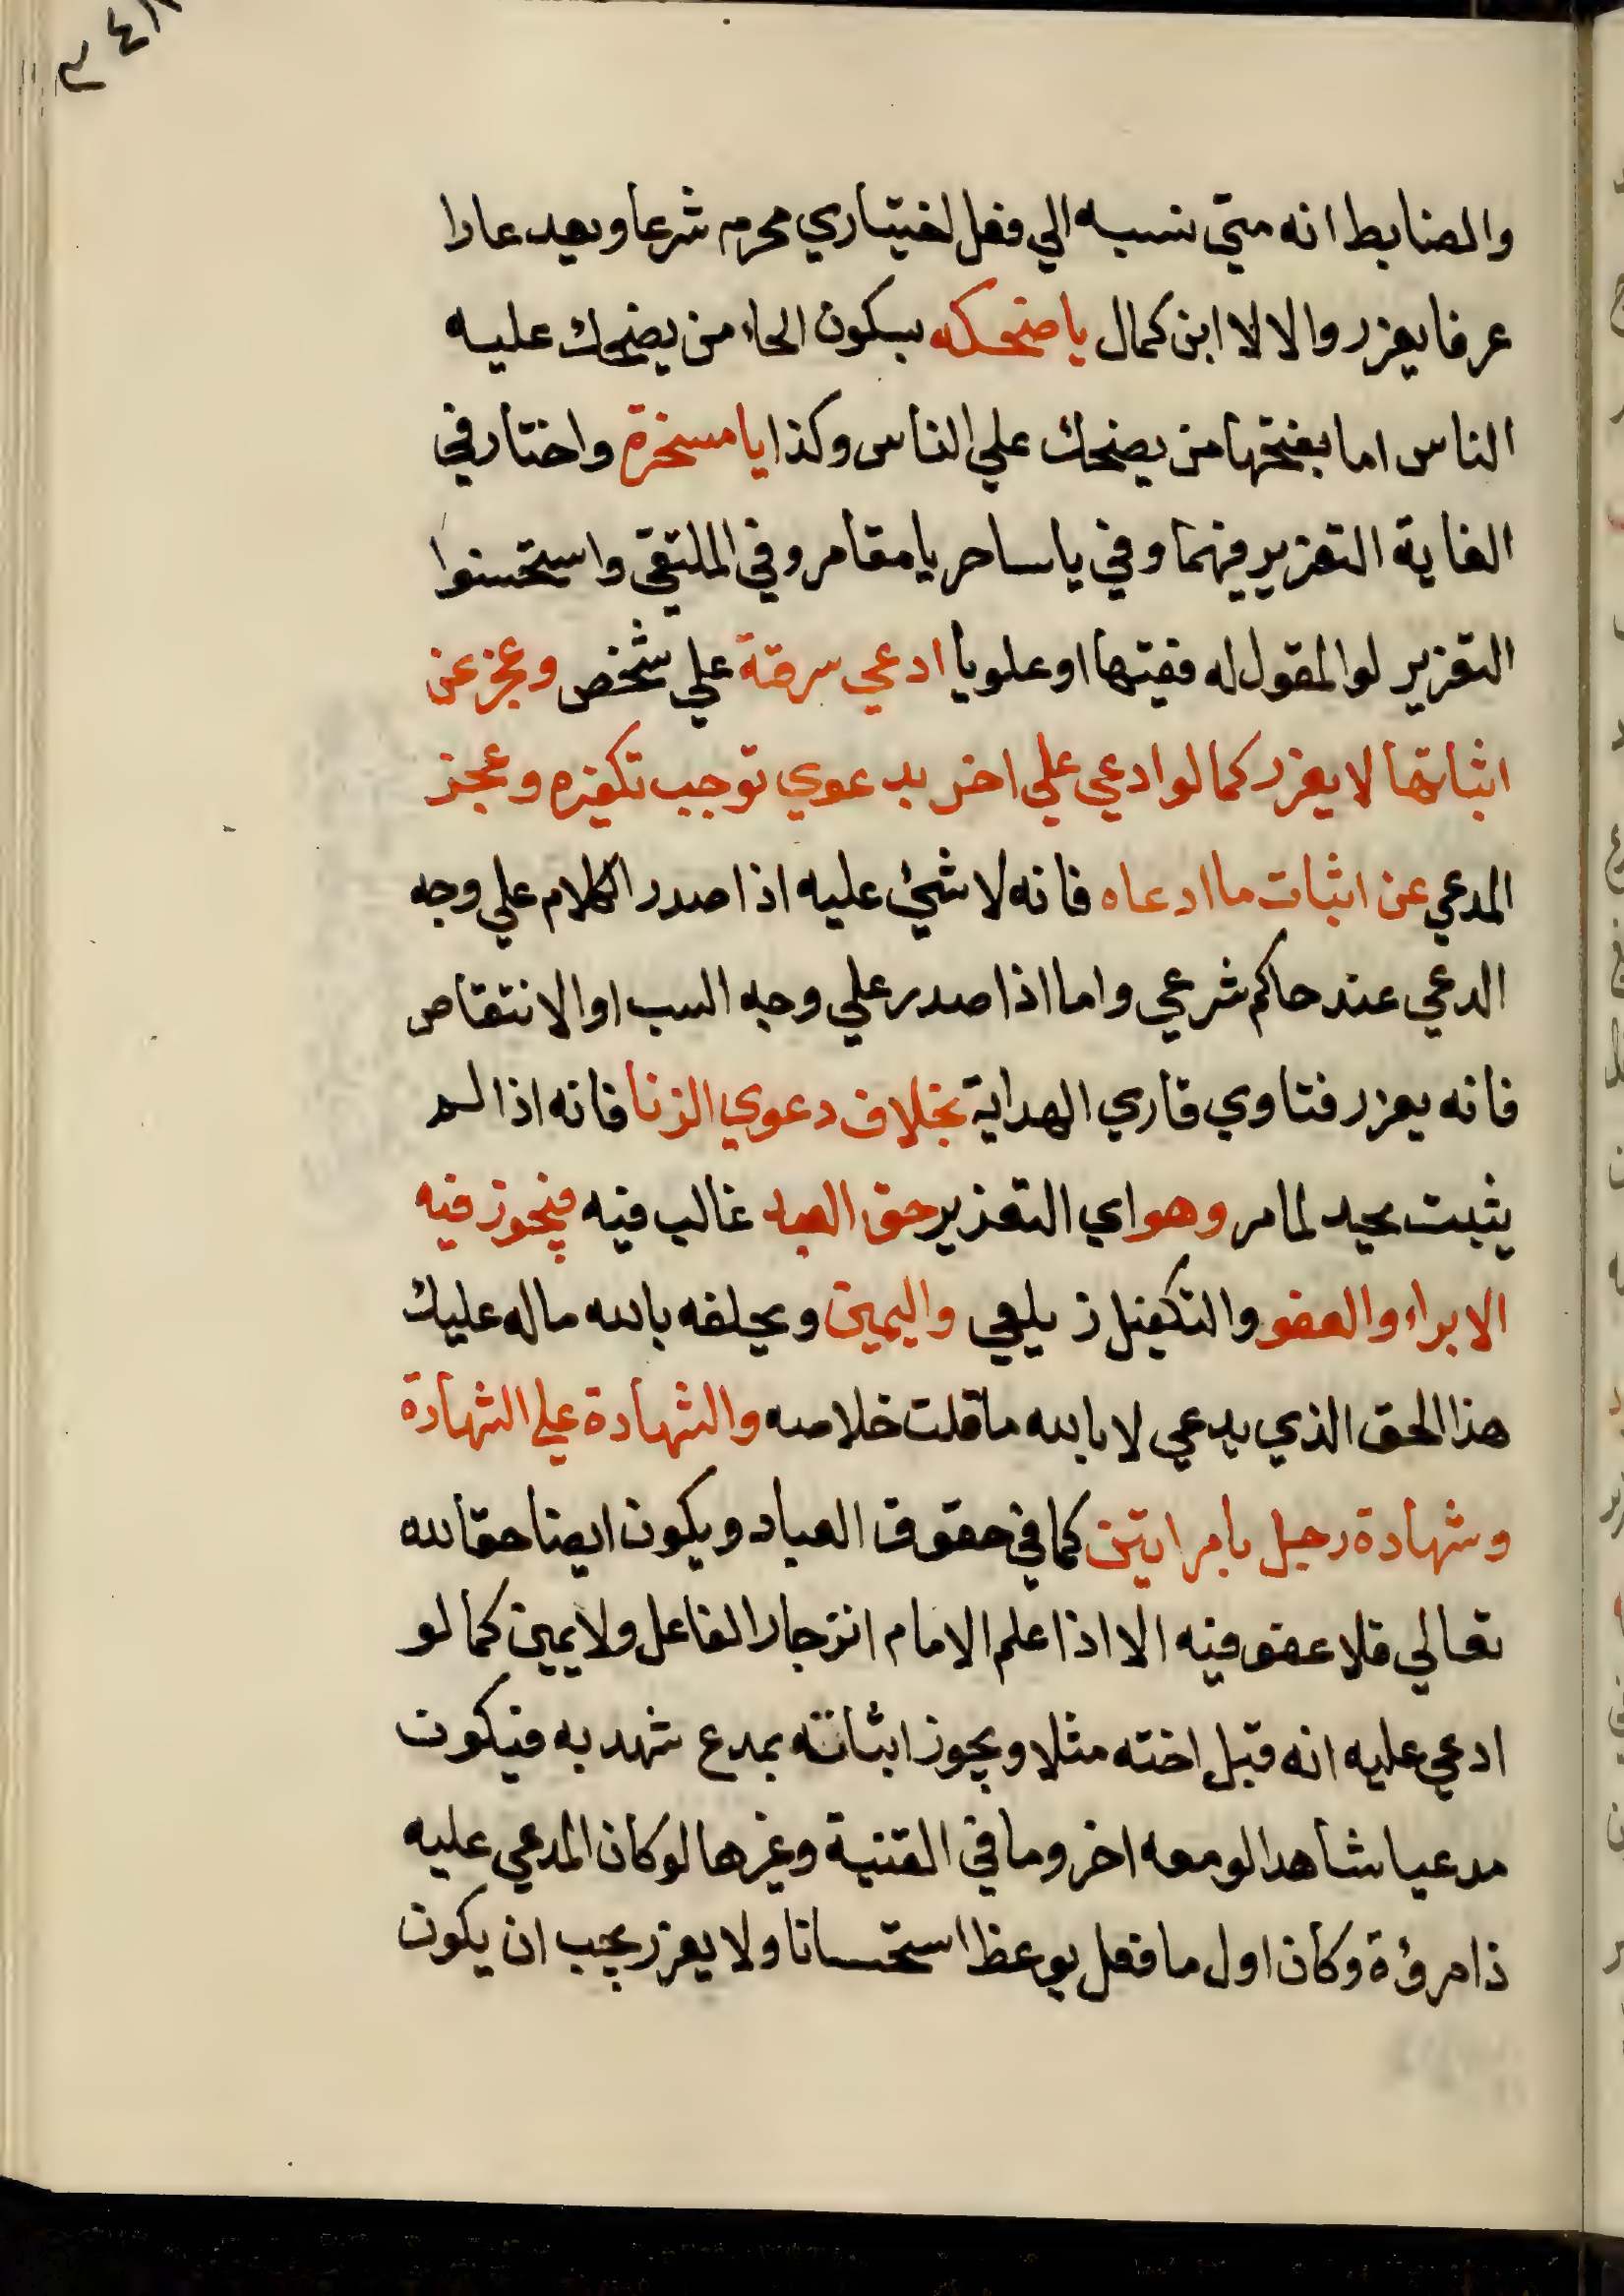 والضابط انه متي نسبه الي فعل اختياري محرم شرعا ويعد عارا
عرفا يعزر والا لا ابن كمال يا ضحكه بسكون الحاء من يضحك عليه
الناس اما بفتحها من يضحك علي الناس وكذا يا مسخرة واختار في
الغاية التعزير فيهما وفي يا ساحر يا مقامر وفي الملتقي واستحسنوا
التعزير لو المقول له فقيها او علويا ادعي سرقة علي شخص وعجز عن
اثباتها لا يعزر كما لو ادعي علي اخر بدعوي توجب تكفيره وعجز
المدعي عن اثبات ما ادعاه فانه لا شئ عليه اذا صدر الكلام علي وجه
الدعي عند حاكم شرعي واما اذا صدر علي وجه السب او الانتقاص
فانه يعزر فتاوي قاري الهداية بخلاف دعوي الزنا فانه اذا لم
يثبت يحد لما مر وهو اي التعزير حق العبد غالب فيه فيجوز فيه
الابراء والعفو والتكفيل زيلعي واليمين ويحلفه بالله ماله عليك
هذا الحق الذي يدعي لا بالله ما قلت خلاصه والشهادة علي الشهادة
وشهادة رجل بامراتين كما في حقوق العباد ويكون ايضا حقا لله
تعالي فلا عفو فيه الا اذا علم الامام انزجار الفاعل ولا يمين كما لو
ادعي عليه انه قبل اخته مثلا ويجوز اثباته بمدع شهد به فيكون
مدعيا شاهدا لو معه اخر وما في القنية وغيرها لو كان المدعي عليه
ذا مرؤة وكان اول ما فعل يوعظ استحسانا ولا يعزر يجب ان يكون